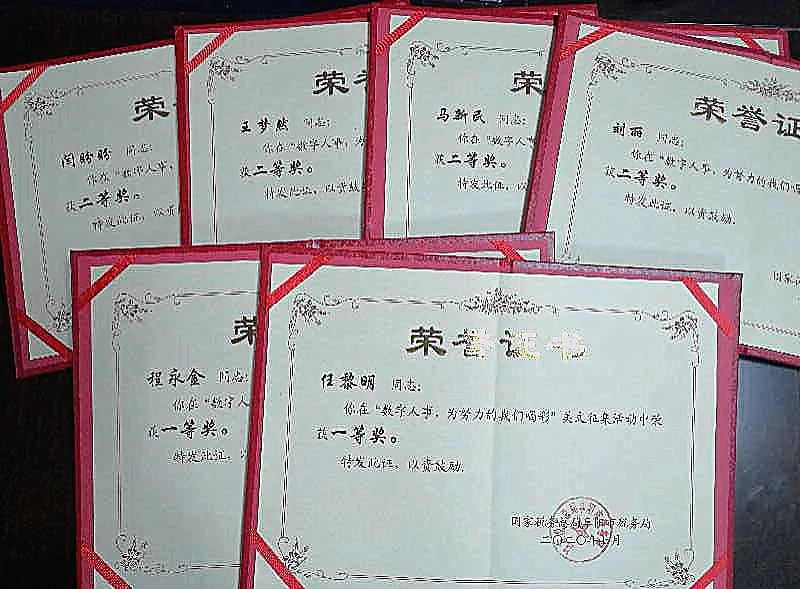 荣
闫盼盼 同志:
你在“数字人事,
获二等奖。
特发此证,以资
荣
王梦然 同志:
你在“数字人事,为
获二等奖。
特发此证,以资鼓
荣
马新民 同志:
你在“数字人事
获二等奖。
特发此证,以
荣誉证
刘丽 同志:
你在“数字人事,为努力的我们喝
获二等奖。
特发此证,以资鼓励。
国家
荣
程永金 同志:
你在“数字人
获一等奖。
特发此证,
荣誉证书
任黎明 同志:
你在“数字人事,为努力的我们喝彩”美文征集活动中荣
获一等奖。
特发此证,以资鼓励。
国家税务总局阜阳市税务局
二〇二〇年 月